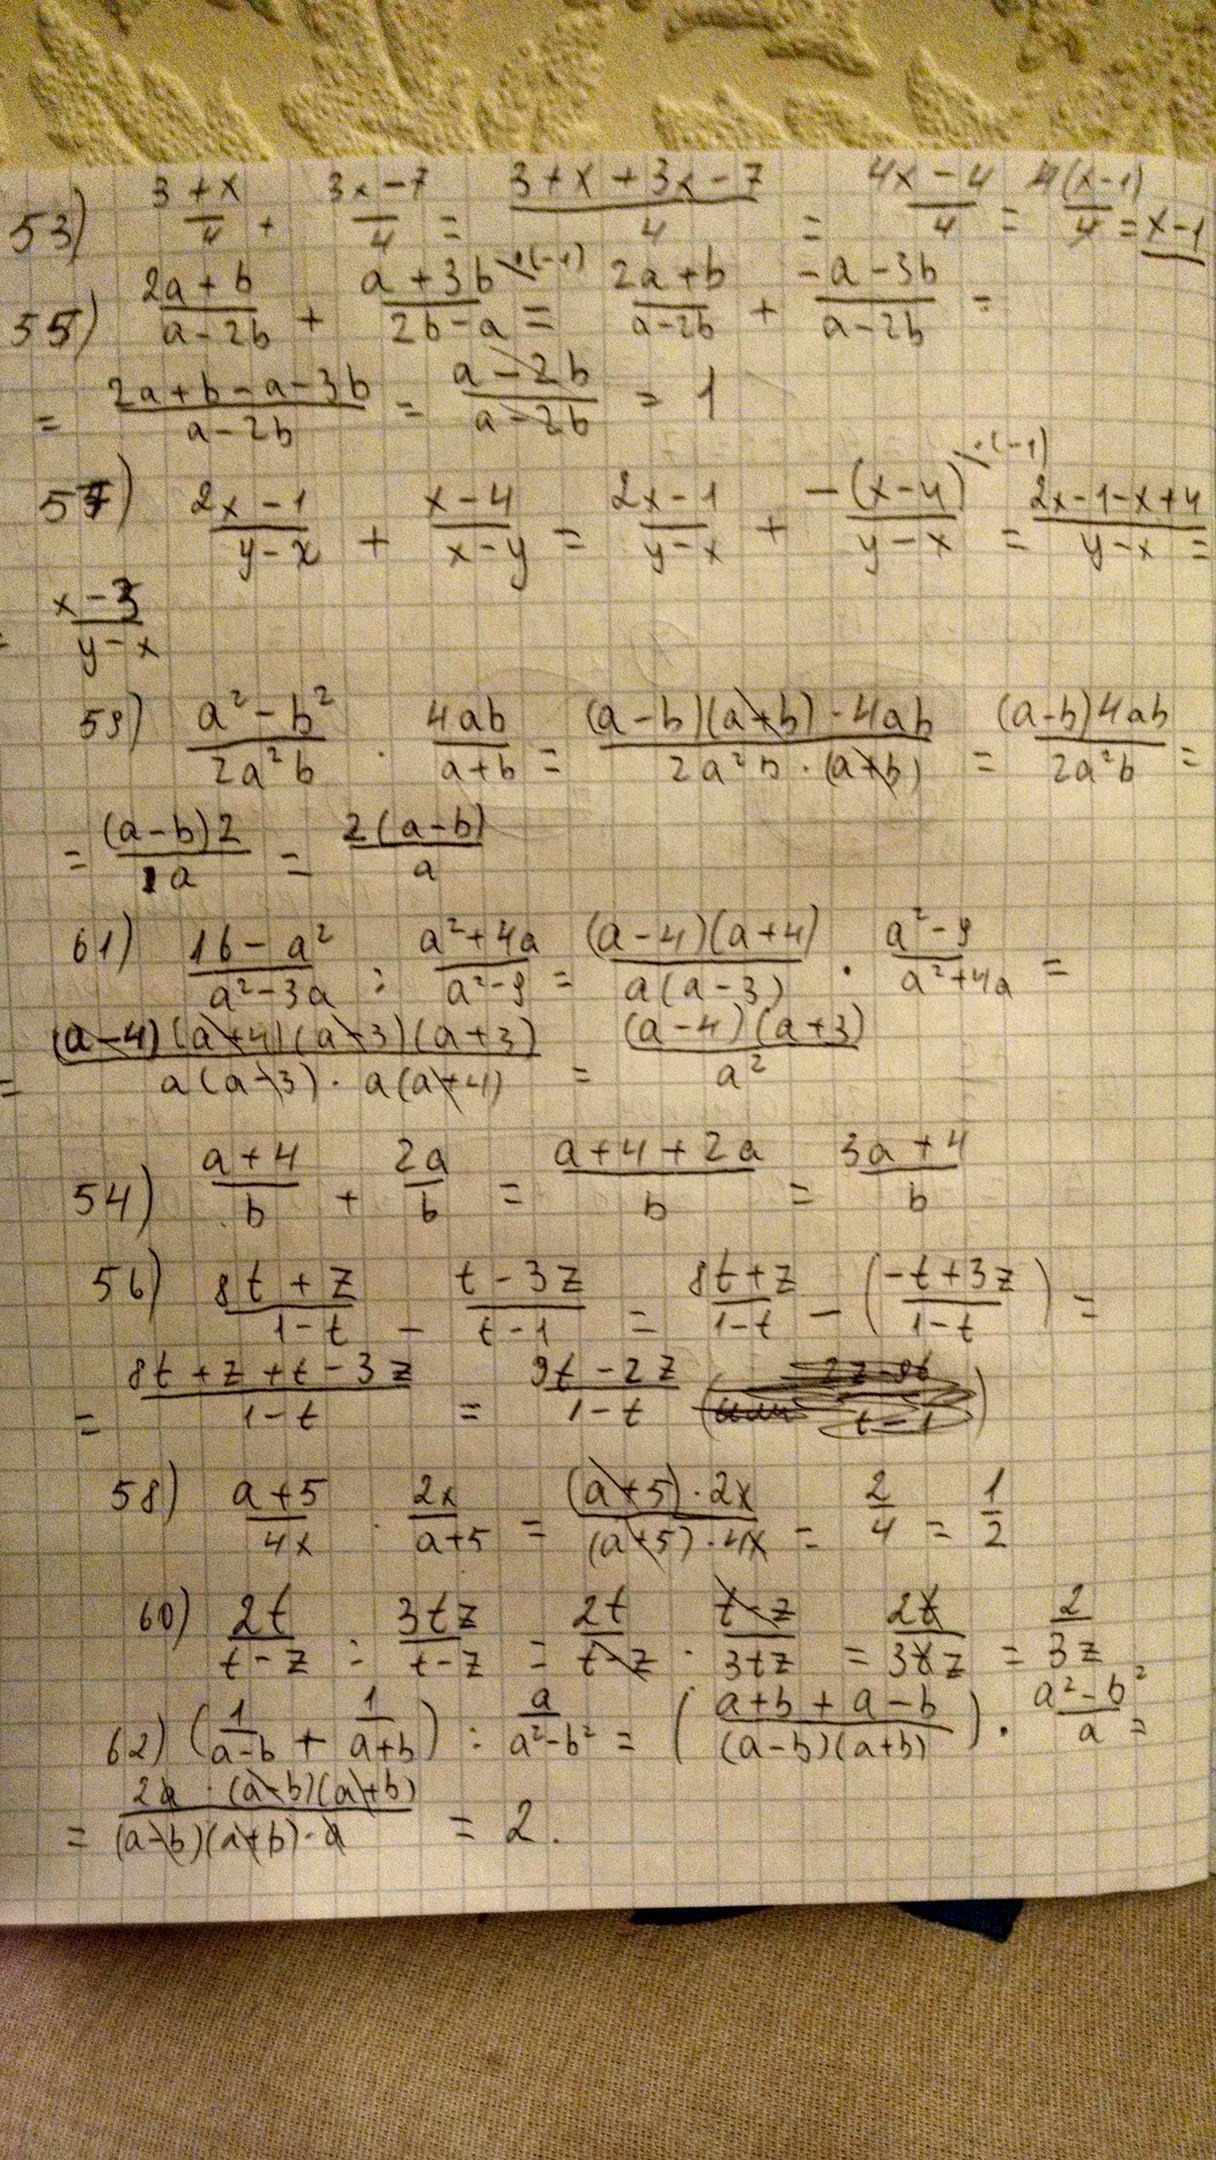 53) (3+x)/4 + (3x-7)/4 = (3+x+3x-7)/4 = (4x-4)/4 = 4(x-1)/4 = x-1
55) (2a+b)/(a-2b) + (a+3b)/(2b-a) \·(-1) = (2a+b)/(a-2b) + (-a-3b)/(a-2b) =
= (2a+b-a-3b)/(a-2b) = (a-2b)/(a-2b) = 1
57) (2x-1)/(y-x) + (x-4)/(x-y) = (2x-1)/(y-x) + (-(x-4))/(y-x) \·(-1) = (2x-1-x+4)/(y-x) =
= (x-3)/(y-x)
59) (a²-b²)/(2a²b) · 4ab/(a+b) = ((a-b)(a+b)·4ab)/(2a²b·(a+b)) = ((a-b)4ab)/(2a²b) =
= ((a-b)2)/(1a) = 2(a-b)/a
61) (16-a²)/(a²-3a) : (a²+4a)/(a²-9) = ((a-4)(a+4))/(a(a-3)) · (a²-9)/(a²+4a) =
= ((a-4)(a+4)(a-3)(a+3))/(a(a-3)·a(a+4)) = ((a-4)(a+3))/a²
54) (a+4)/b + 2a/b = (a+4+2a)/b = (3a+4)/b
56) (8t+z)/(1-t) - (t-3z)/(t-1) = (8t+z)/(1-t) - ((-t+3z)/(1-t)) =
= (8t+z+t-3z)/(1-t) = (9t-2z)/(1-t)
58) (a+5)/4x · 2x/(a+5) = ((a+5)·2x)/((a+5)·4x) = 2/4 = 1/2
60) 2t/(t-z) : 3tz/(t-z) = 2t/(t-z) · (t-z)/3tz = 2t/3tz = 2/3z
62) (1/(a-b) + 1/(a+b)) : a/(a²-b²) = ((a+b+a-b)/((a-b)(a+b))) · (a²-b²)/a =
= (2a·(a-b)(a+b))/((a-b)(a+b)·a) = 2.